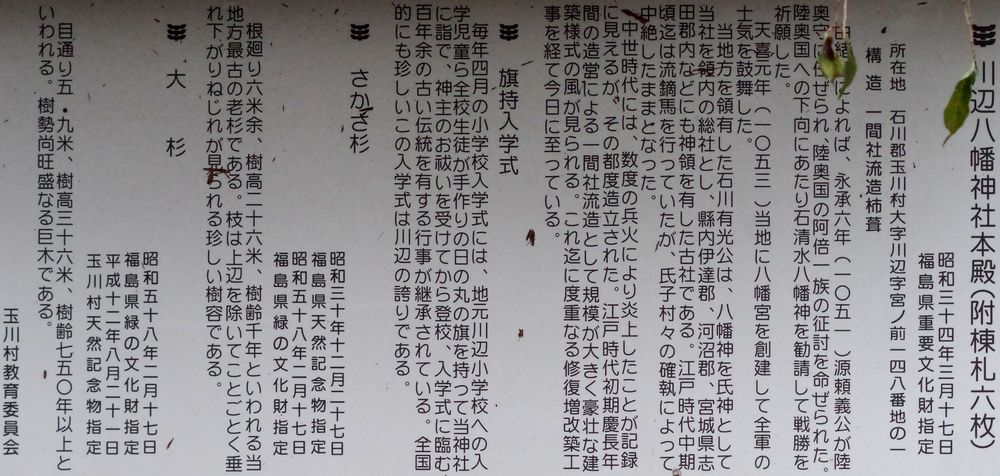 川辺八幡神社本殿(附棟札六枚)
昭和三十四年三月十七日
福島県重要文化財指定
所在地 石川郡玉川村大字川辺字宮ノ前一四八番地の一
構造 一間社流造杮葺
由緒によれば、永承六年(一〇五一)源頼義公が陸
奥守に任ぜられ、陸奥国の阿倍一族の征討を命ぜられた
陸奥国への下向にあたり石清水八幡神を勧請して戦勝を
祈願した。
天喜元年(一〇五三)当地に八幡宮を創建して全軍の
士気を鼓舞した。
当地方を領有した石川有光公は、八幡神を氏神として
当社を領内の総社とし、縣内伊達郡、河沼郡、宮城県志
田郡内などにも神領を有した古社である。江戸時代中期
頃迄は流鏑馬を行っていたが、氏子村々の確執によって
中絶したままとなった。
中世時代には、数度の兵火により炎上したことが記録
に見えるが、その都度造立された。江戸時代初期慶長年
間の造営による一間社流造として規模が大きく豪壮な建
築様式の風が見られる。これ迄に度重なる修復増改築工
事を経て今日に至っている。
旗持入学式
毎年四月の小学校入学式には、地元川辺小学校への入
学児童ら全校生徒が手作りの日の丸の旗を持って当神社
に詣で、神主のお祓いを受けてから登校、入学式に臨む
百年余の古い伝統を有する行事が継承されている。全国
的にも珍しいこの入学式は川辺の誇りである。
さかさ杉
昭和三十年十二月二十七日
福島県天然記念物指定
昭和五十八年二月十七日
福島県緑の文化財指定
根廻り六米余、樹高二十六米、樹齢千年といわれる当
地方最古の老杉である。枝は上辺を除いてことごとく垂
れ下がりねじれが見られる珍しい樹容である。
大杉
昭和五十八年二月十七日
福島県緑の文化財指定
平成十二年八月二十一日
玉川村天然記念物指定
目通り五・九米、樹高三十六米、樹齢七五〇年以上と
いわれる。樹勢尚旺盛なる巨木である。
玉川村教育委員会